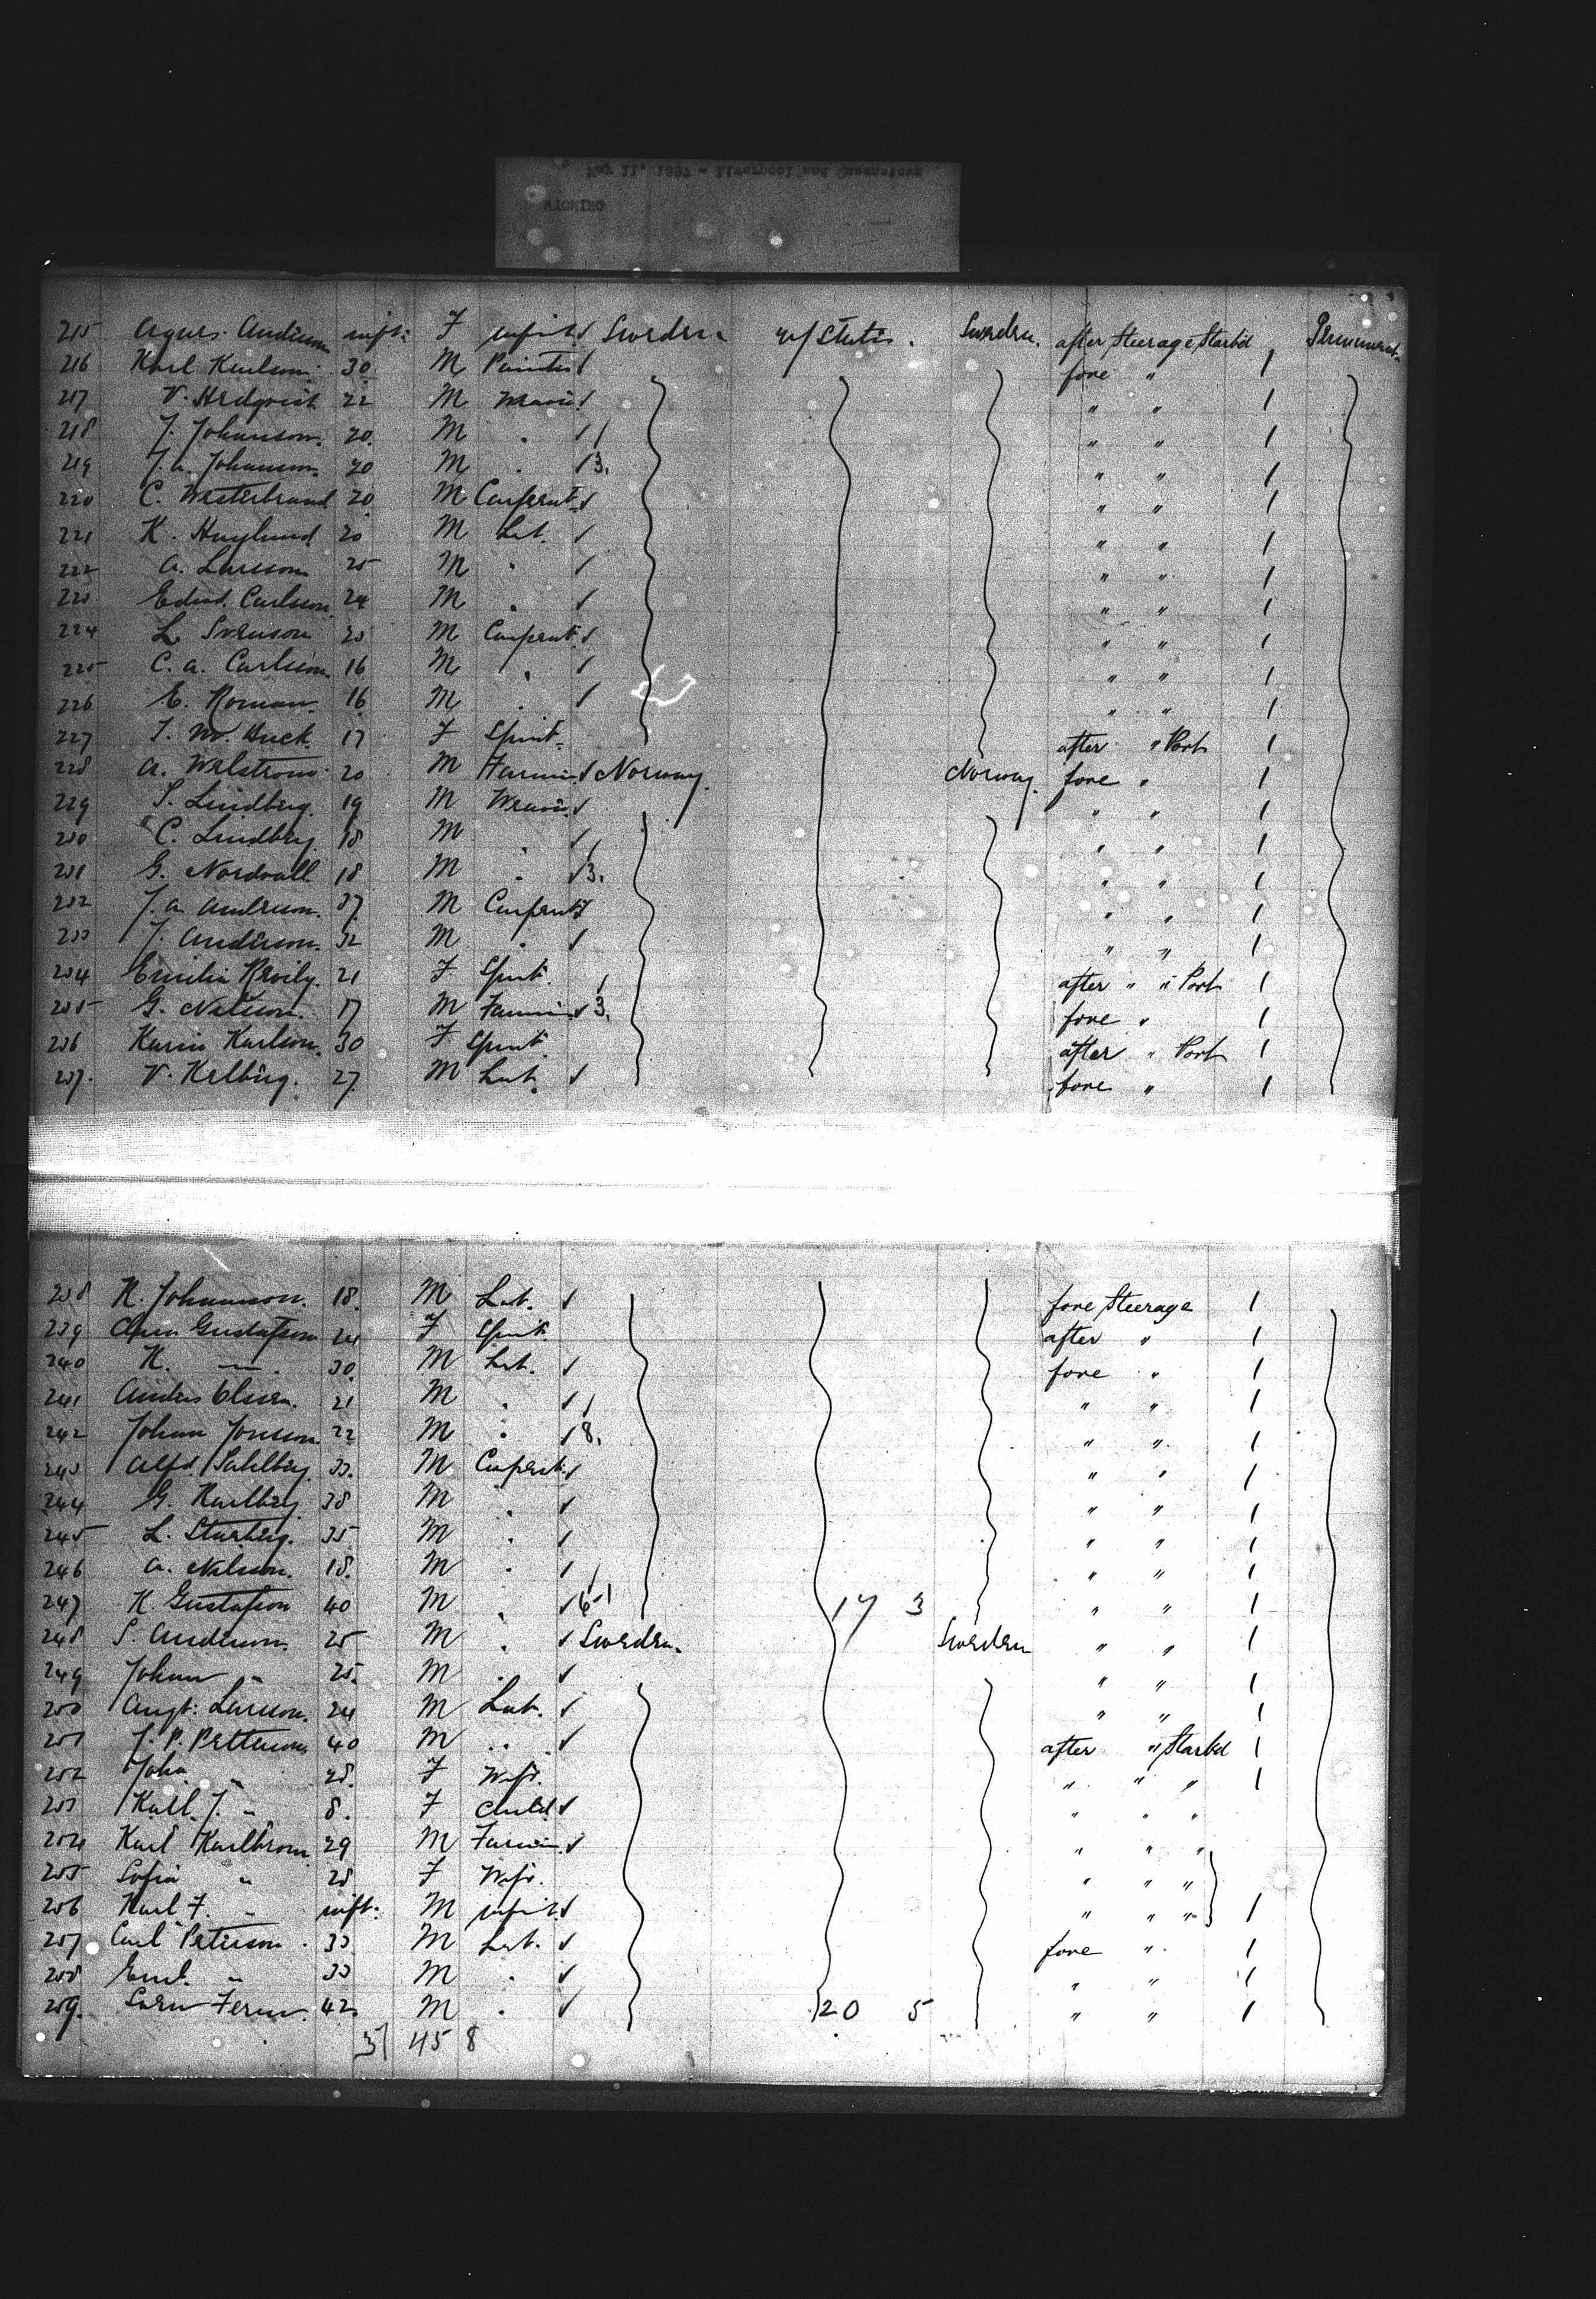 May 11, 1887 - Liverpool and Queenstown
WYOMING
215 Agnes Anderson inft: F infant Sweden U/States. Sweden. after Steerage Starbd 1 Permanent
216 Karl Karlson 30 M Painter fore " 1
217 V. Hedqvist 22 M " " 1
218 J. Johanson. 20. M . " " 1
219 J. A. Johanson. 20 M . 3. " " 1
220 C. Westerbrand 20 M Carpent. " " 1
221 K. Huglund 20 M Lab. " " 1
222 A. Larsson 25 M " " " 1
223 Edwd. Carlsson 24 M " " " 1
224 L. Svenson 25 M Carpent. " " 1
225 C. A. Carlsson 16 M " " " 1
226 E. Roman. 16 M . " " 1
227 17 F Spinst. after " Port 1
228 A. Welstrom 20 M Farmer Norway. Norway. fore " 1
229 S. Lindberg. 19 M " " 1
230 C. Lindberg. 18 M " " " 1
231 G. Nordvall 18 M " 3. " " 1
232 J. A. Anderson. 37 M Carpent. " " 1
233 J. Anderson. 32 M " " " 1
234 Emilia 21 F Spinst. after " " Port 1
235 G. Nelson. 17 M Farmer 3. fore " 1
236 Karin Karlson. 30 F Spinst. after " Port 1
237. V. Kelberg. 27 M Lab. fore " 1
238 K. Johanson. 18. M Lab. fore Steerage 1
239 Gustafson 24 F Spinst. after " 1
240 K. — 30. M Lab. fore " 1
241 Anders Olsen. 21 M . " " 1
242 Johan Jonsson. 22 M . 8. " " 1
243 Alfd. Sahlberg. 33. M Carpent. " " 1
244 G. Karlberg 38 M . " " 1
245 L. 35 M . " " 1
246 A. Nelson. 18. M . " " 1
247 K. Gustafson 40 M . 6-1 17 3 " " 1
248 S. Anderson. 25 M . Sweden. Sweden " " 1
249 Johan " 25. M . " " 1
250 Augt: Larsson. 24 M Lab. " " 1
251 J. P. Petterson 40 M .. after " Starbd 1
252 Joha " 28. F Wife. " " " 1
253 Karl J. " 8. F Child " " "
254 Karl Karlbrom 29 M Farmer " " "
255 Sofia " 28 F Wife. " " "
256 Karl F. " inft: M infant " " " 1
257 Carl Peterson. 33 M Lab. fore " 1
258 Emil. " 33 M . " " 1
259. 42. M . 20 5 " " 1
31 45 8